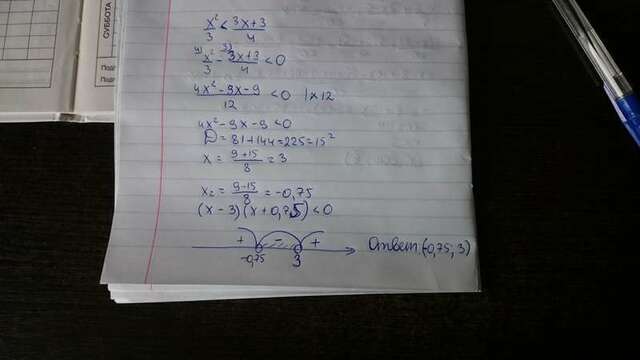 СУББОТА
Подп
Подп
x²/3 < 3x+3/4
4) x²/3 - 3) 3x+3/4 < 0
4x²-9x-9/12 < 0 |×12
4x²-9x-9<0
D=81+144=225=15²
x = 9+15/8 = 3
x₂ = 9-15/8 = -0,75
(x-3)(x+0,75)<0
+ - +
-0,75 3 Ответ: (-0,75; 3)